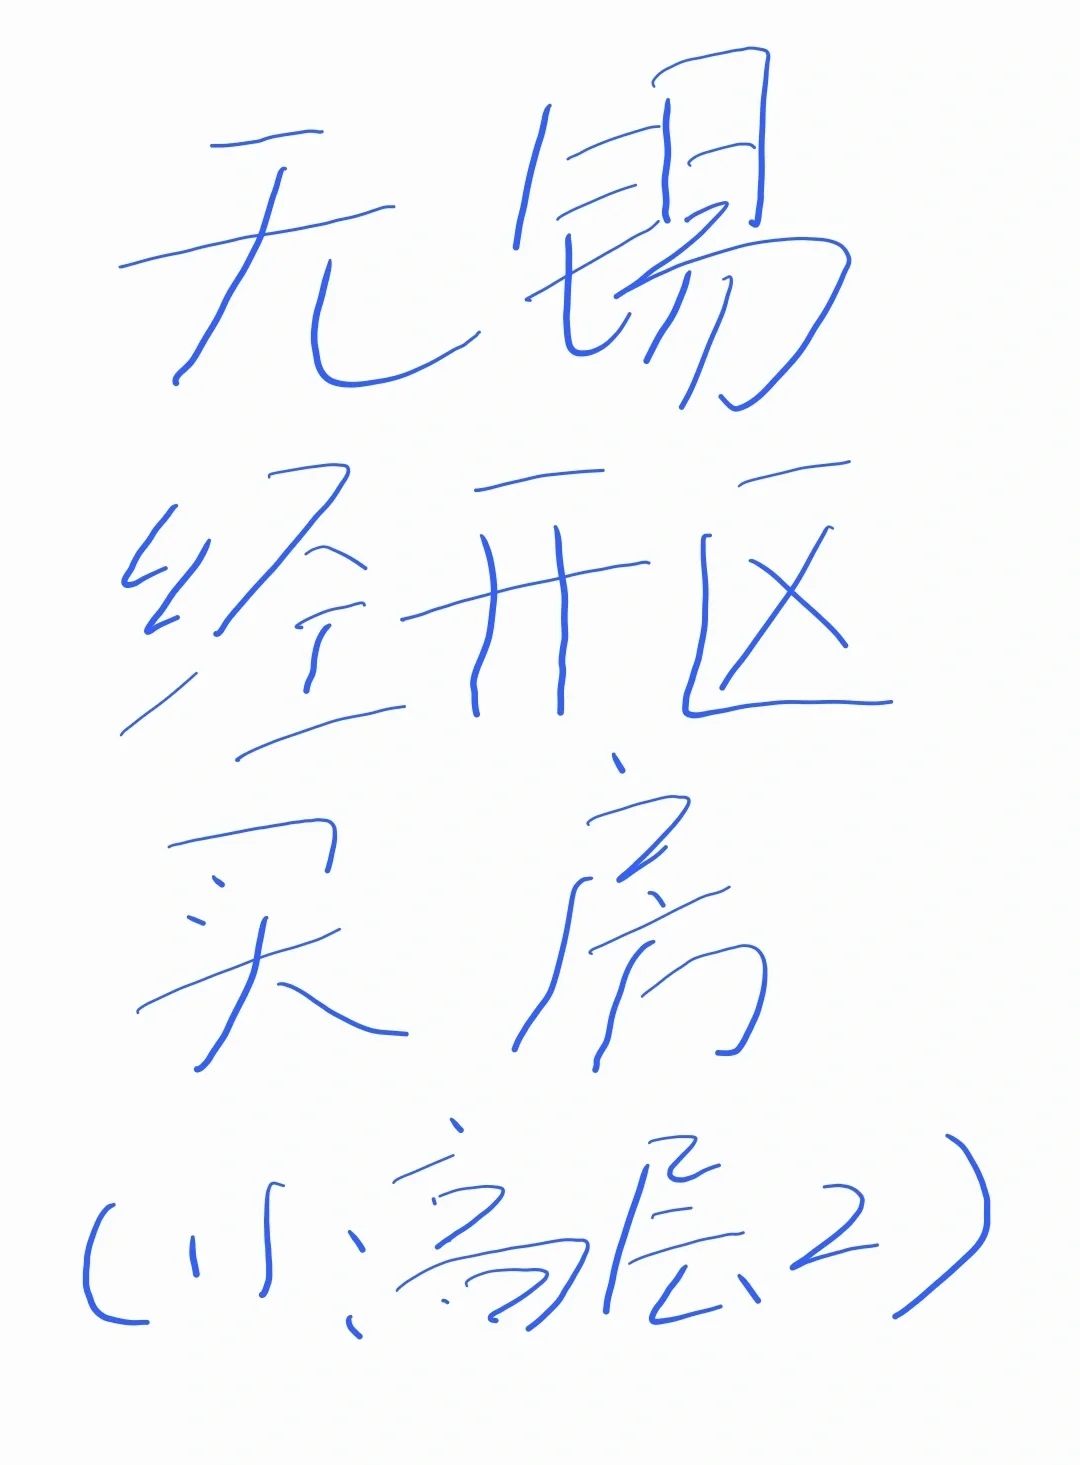 无锡
经开区
买房
(小高层2)